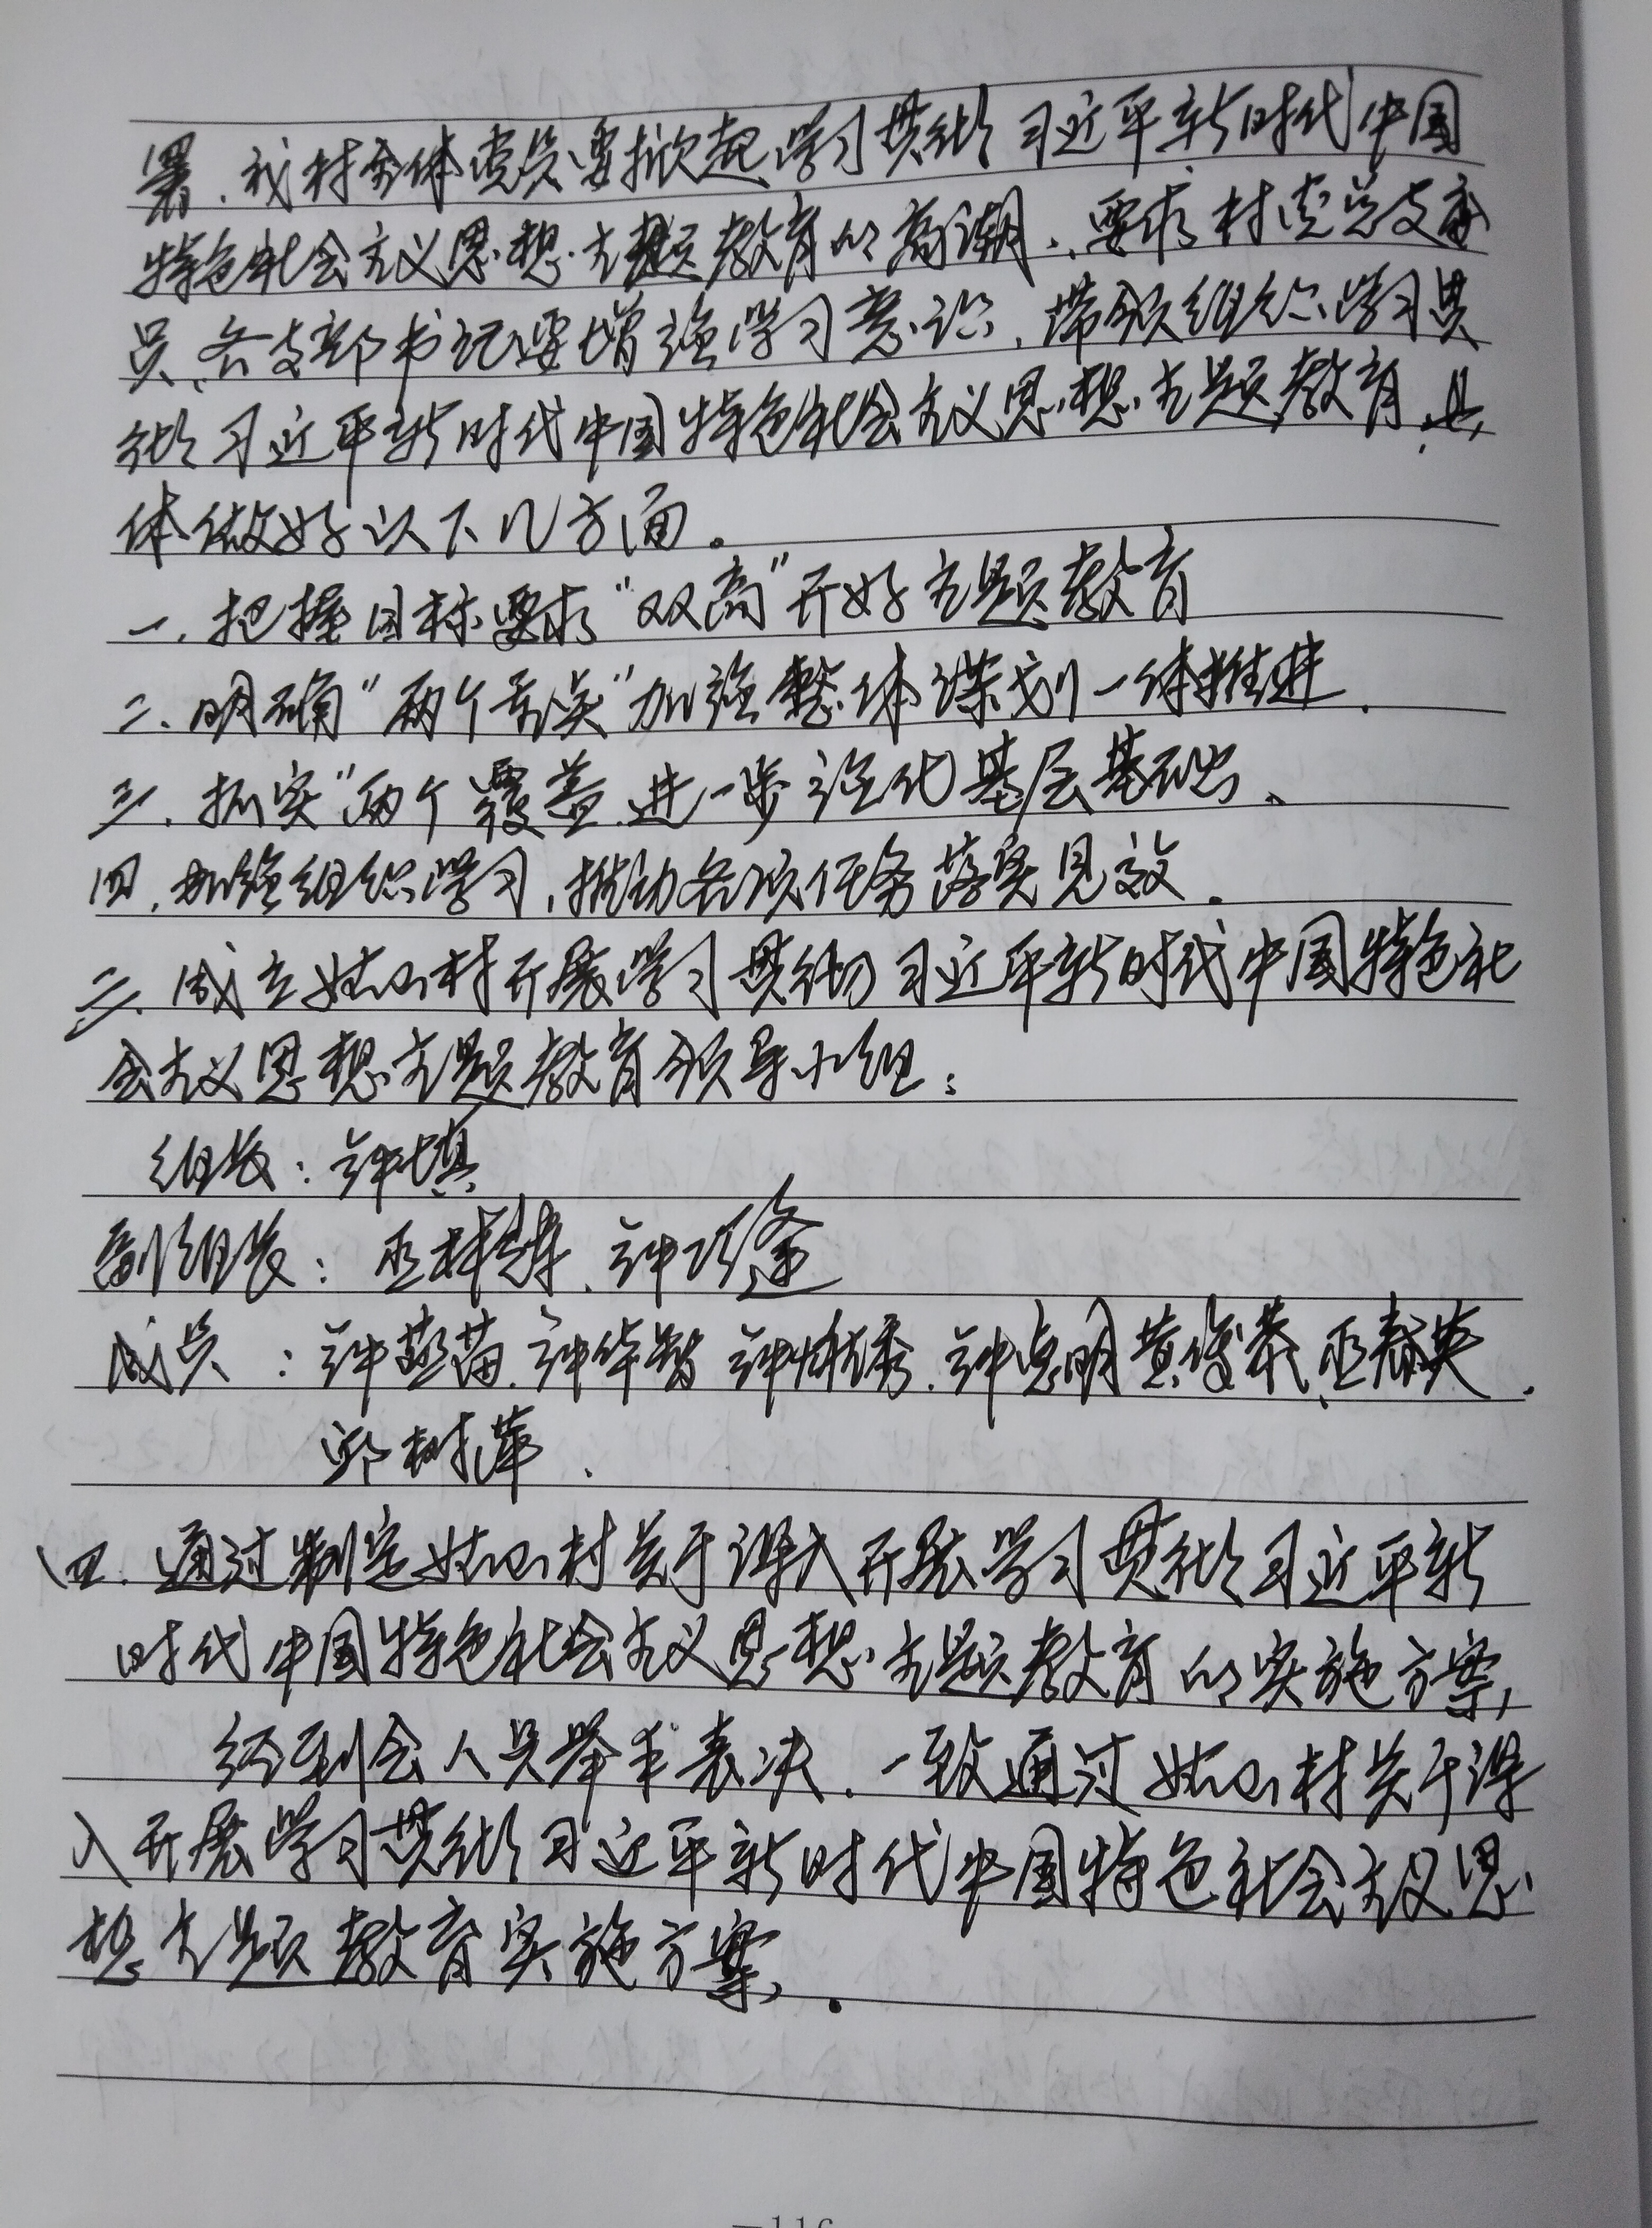 署,我村全体党员要掀起学习贯彻习近平新时代中国
特色社会主义思想主题教育的高潮、要求村党总支委
员、各支部书记要增强学习意识,带领组织学习贯
彻习近平新时代中国特色社会主义思想主题教育,具
体做好以下几方面。
一、把握目标要求“双高”开好主题教育
二、明确“两个”加强整体谋划一体推进.
三、抓实“两个覆盖进一步强化基层基础、
四、加强组织学习,推动各项任务落实见效.
三、成立村开展学习贯彻习近平新时代中国特色社
会主义思想主题教育领导小组:
组长:钟
副组长:巫、钟
成员:钟苗、钟华 钟秀、钟明 黄俊 巫春英、
邱树萍、
四、通过制定村关于深入开展学习贯彻习近平新
时代中国特色社会主义思想主题教育的实施方案,
经到会人员举手表决,一致通过村关于深
入开展学习贯彻习近平新时代中国特色社会主义思
想主题教育实施方案.
—116